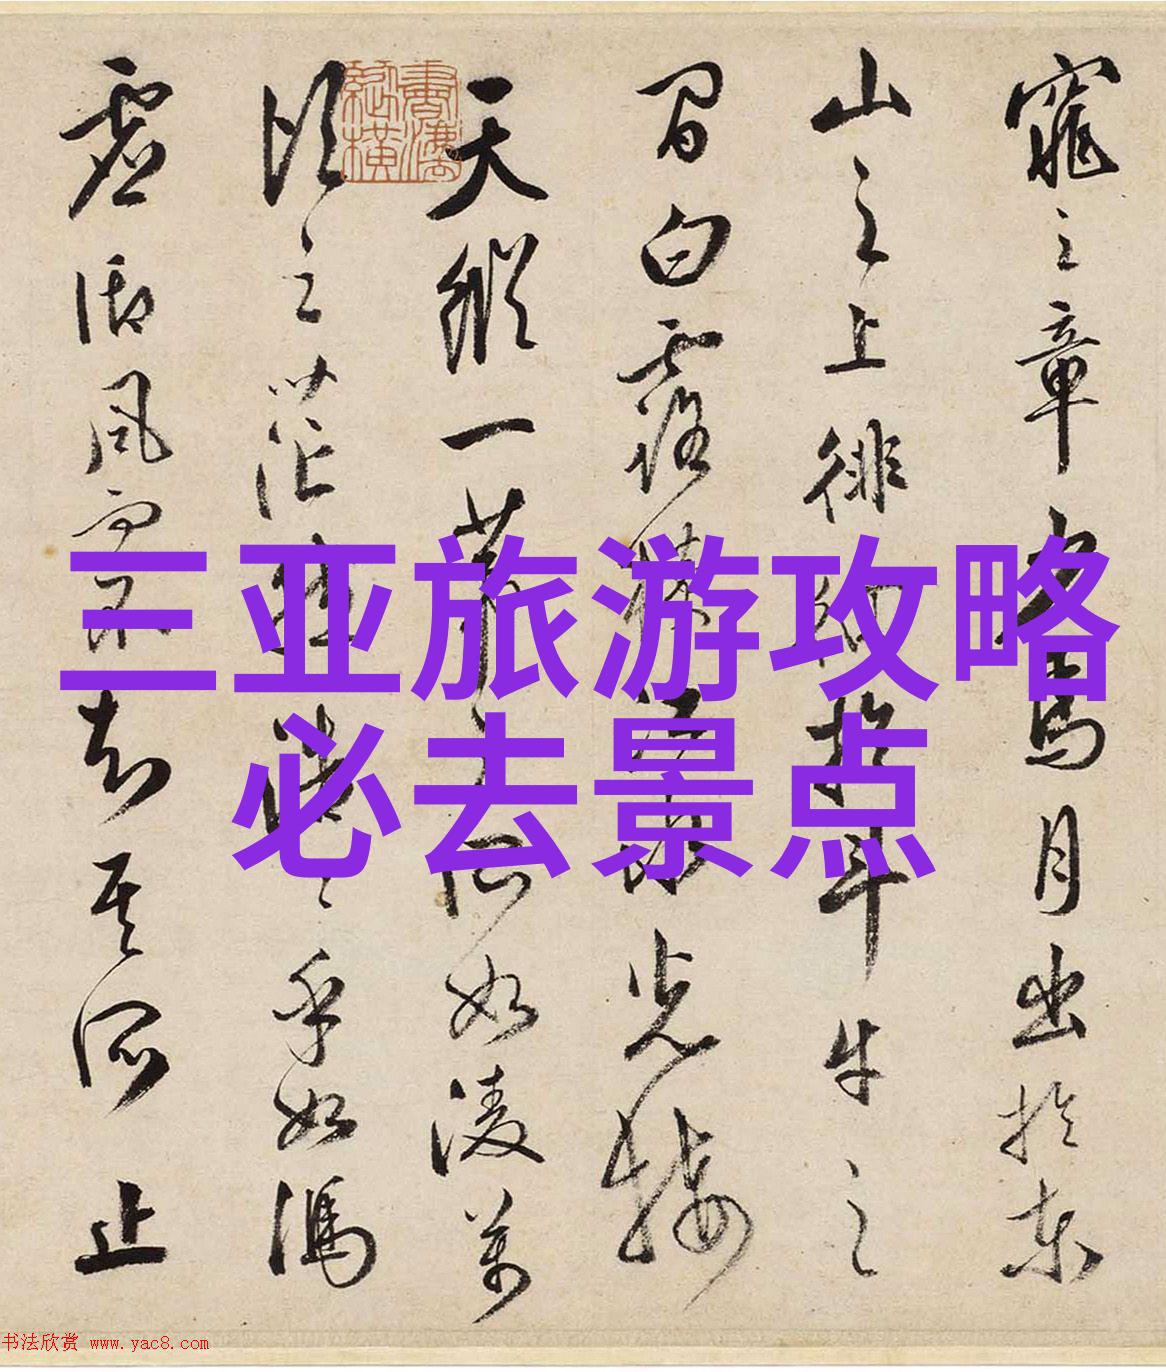 窕之章少焉月出於東
山之上徘徊於斗牛之
間白露橫江水光接
天縱一葦之所如凌萬
頃之茫然浩〻乎如馮
虛御風而不知其所止
三亚旅游攻略
必去景点
书法欣赏 www.yac8.com